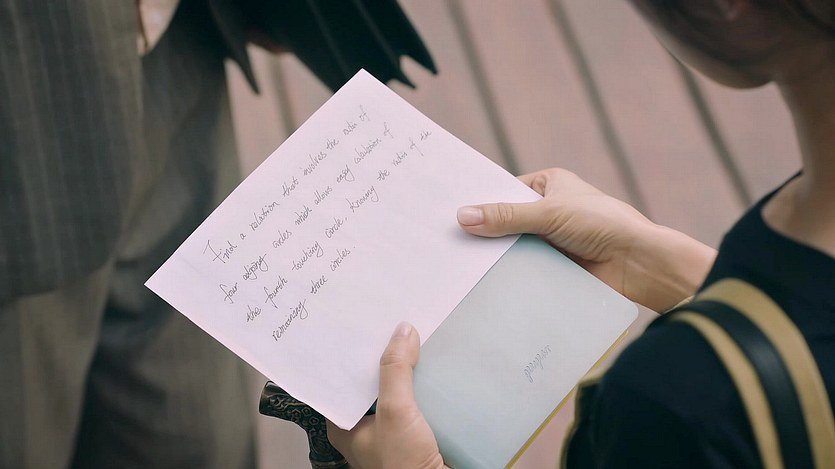 Find a relation that involves the radii of
four adjoing circles which allows easy calculation of
the fourth touching circle, knowing the radii of the
remaining three circles.